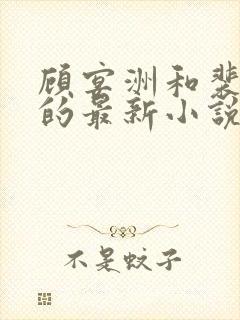 顾宴洲和裴
的最新小说
不是蚊子